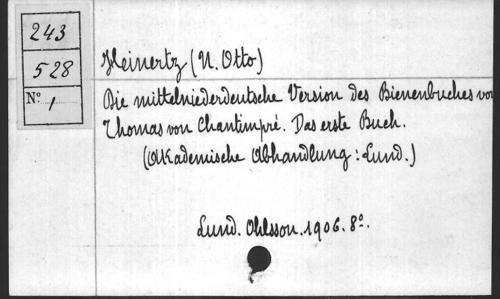 243
528
No. 1
Heinertz (N. Otto)
Die mittelniederdeutsche Version des Bienenbuches von
Thomas von Chantimpré. Das erste Buch.
(Akademische Abhandlung: Lund.)
Lund. Ohlsson. 1906. 8o.